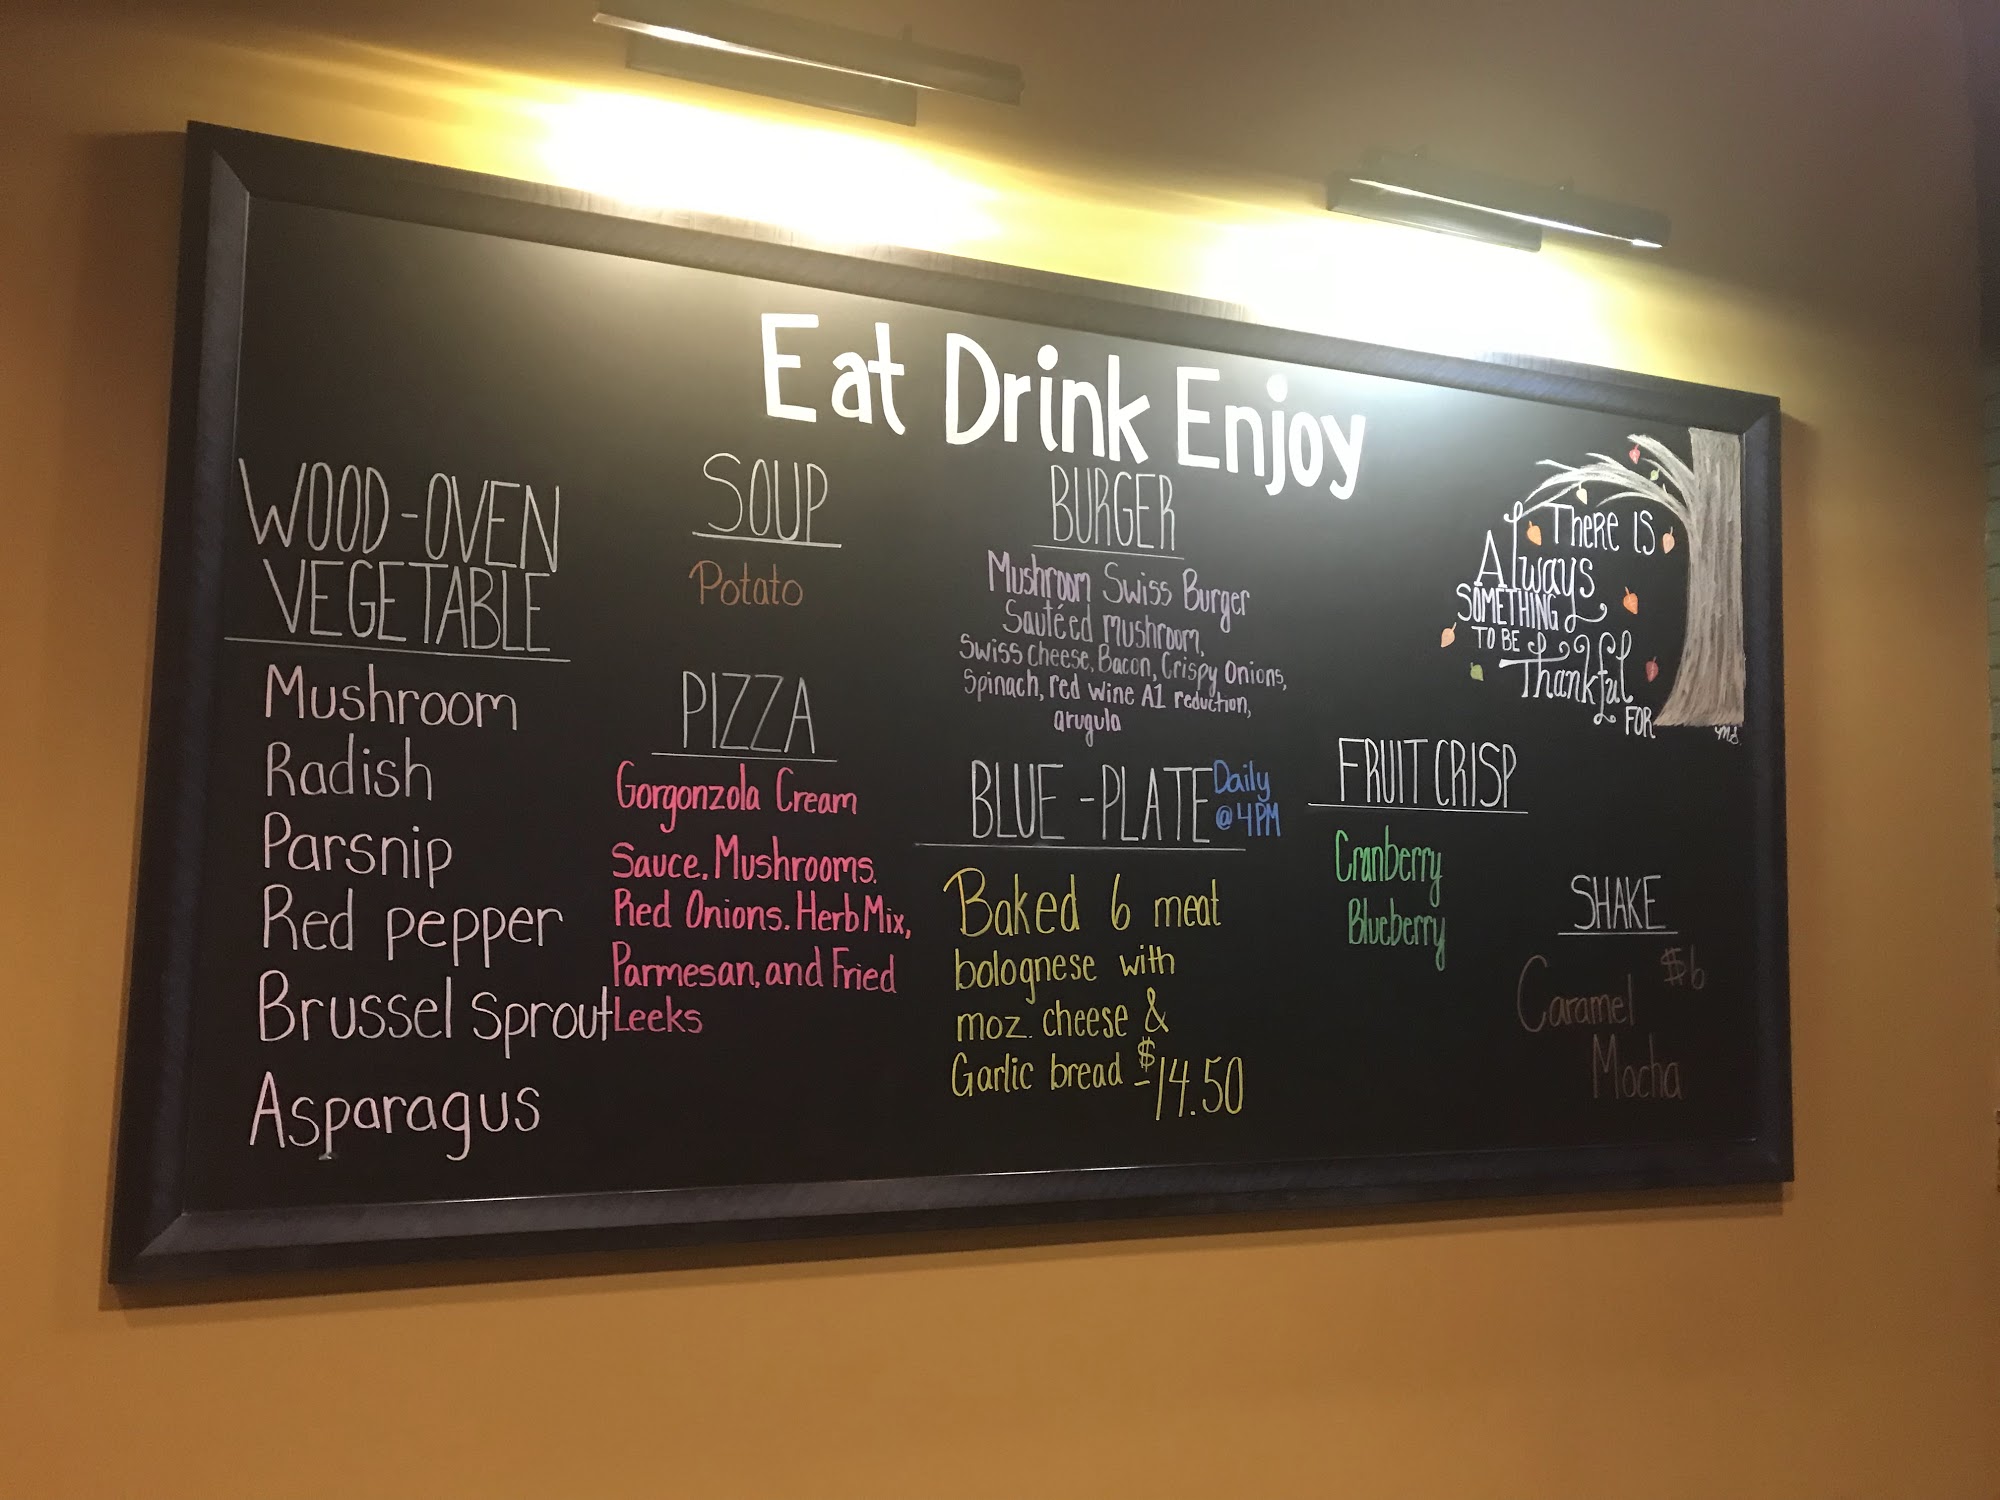 Eat Drink Enjoy
WOOD-OVEN
VEGETABLE
Mushroom
Radish
Parsnip
Red pepper
Brussel sprout
Asparagus
SOUP
Potato
PIZZA
Gorgonzola Cream
Sauce, Mushrooms,
Red Onions, Herb Mix,
Parmesan, and Fried
Leeks
BURGER
Mushroom Swiss Burger
Sautéed mushroom,
Swiss cheese, Bacon, Crispy Onions,
Spinach, red wine A1 reduction,
arugula
BLUE-PLATE
Daily
@ 4PM
Baked 6 meat
bolognese with
moz. cheese &
Garlic bread - $14.50
There is
Always
SOMETHING
TO BE
Thankful
FOR
M.S.
FRUIT CRISP
Cranberry
Blueberry
SHAKE
$6
Caramel
Mocha